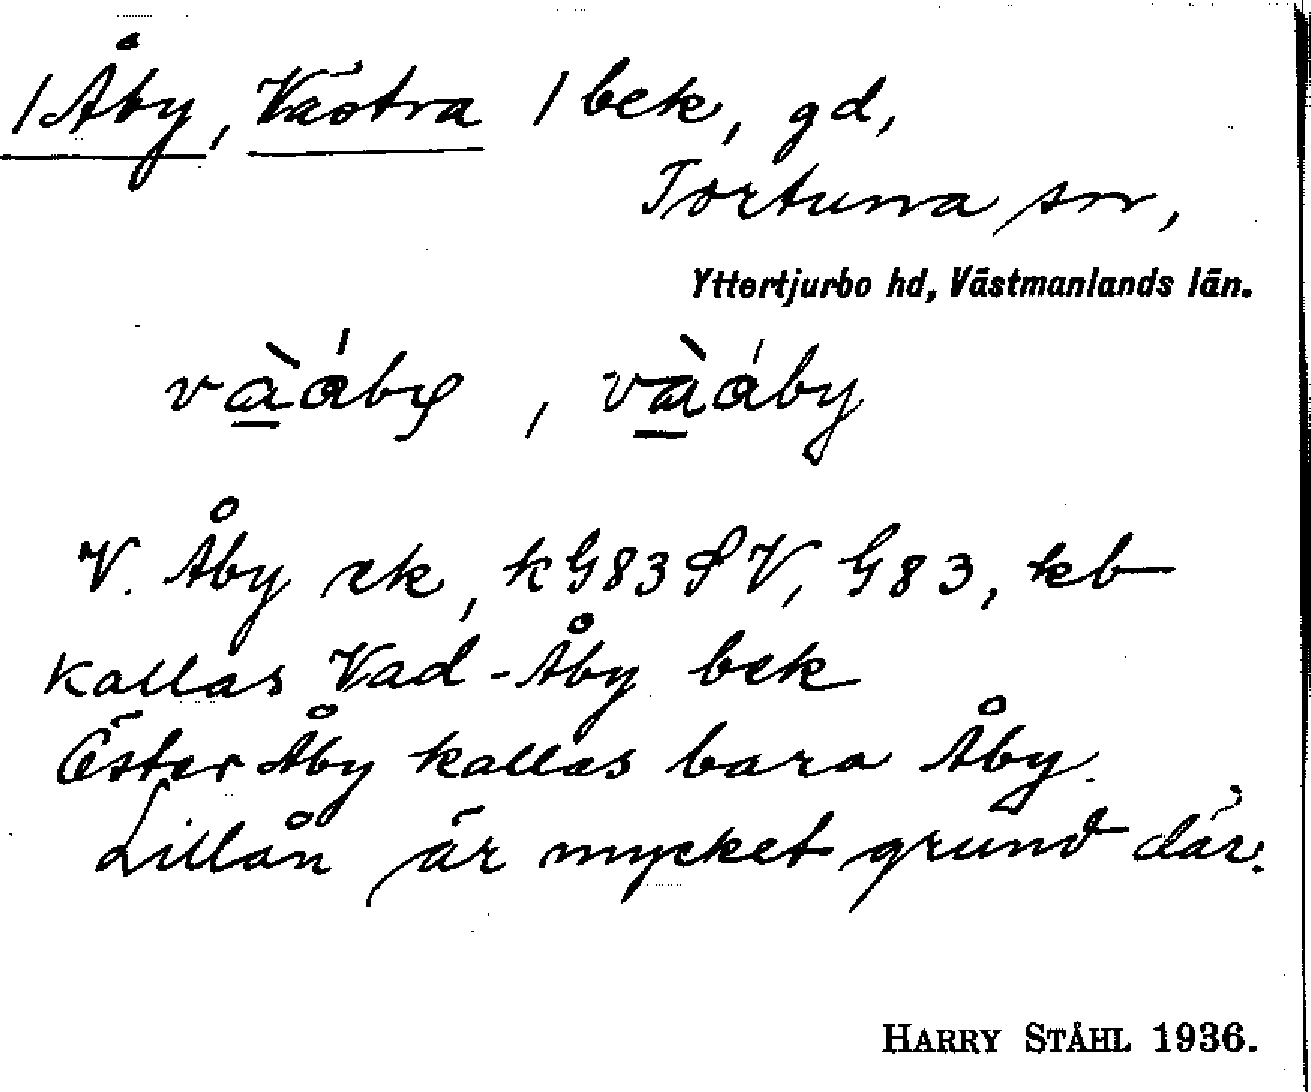 /Åby, Västra / bek, gd,
Tortuna sn,
Yttertjurbo hd, Västmanlands län.
và̲áby, và̲áby
V. Åby ek, kG83SV, G83, kb
kallas Vad-Åby bek
Öster Åby kallas bara Åby.
Lillån är mycket grund där.
HARRY STÅHL 1936.